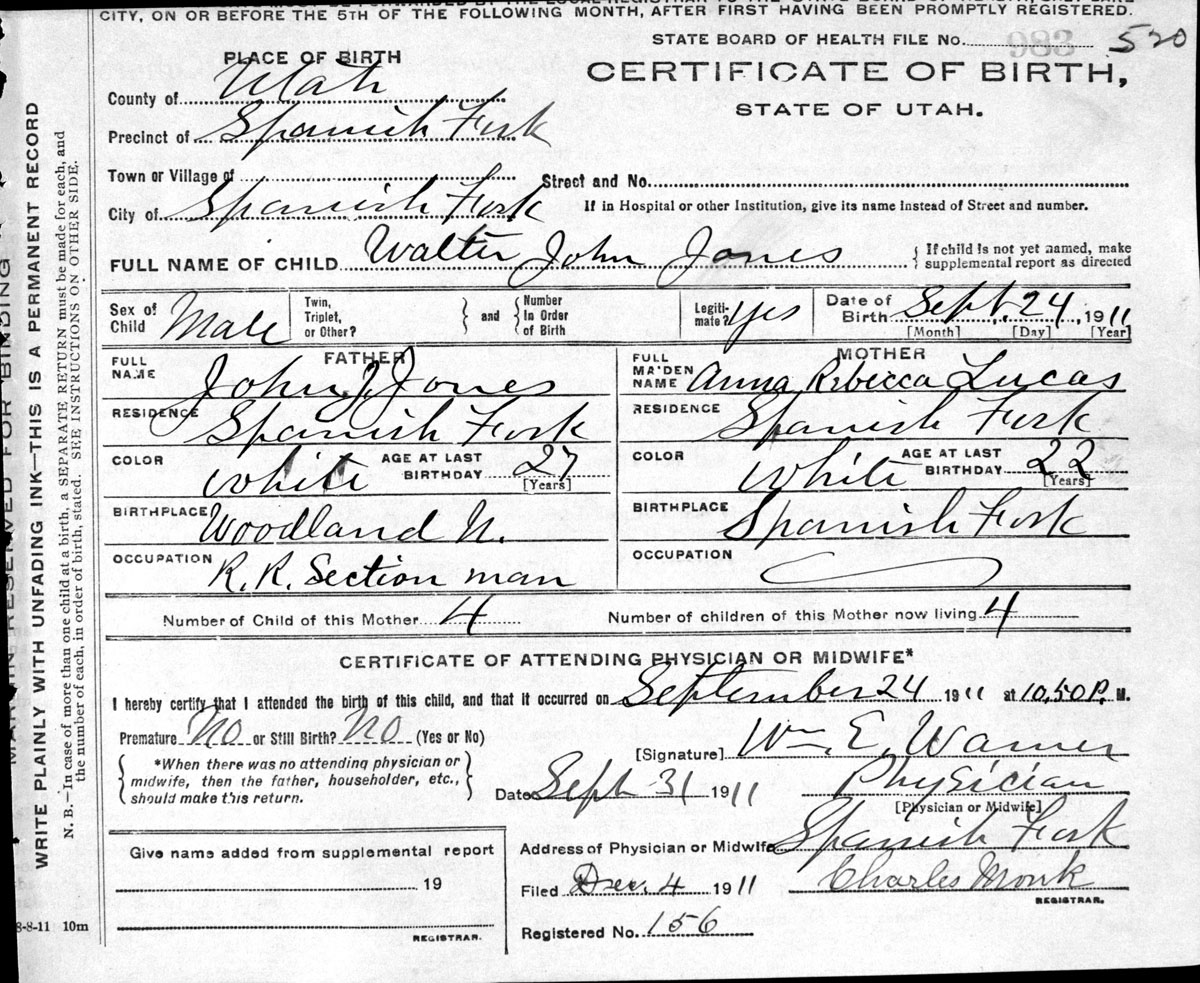 CITY, ON OR BEFORE THE 5TH OF THE FOLLOWING MONTH, AFTER FIRST HAVING BEEN PROMPTLY REGISTERED.
STATE BOARD OF HEALTH FILE No. 983 520
PLACE OF BIRTH
CERTIFICATE OF BIRTH,
STATE OF UTAH.
County of Utah
Precinct of Spanish Fork
Town or Village of
Street and No.
City of Spanish Fork
If in Hospital or other Institution, give its name instead of Street and number.
FULL NAME OF CHILD Walter John Jones
{ If child is not yet named, make
supplemental report as directed
Sex of Child Male
Twin, Triplet, or Other? } and { Number In Order of Birth
Legiti-mate? yes
Date of Birth Sept. 24, 1911
[Month] [Day] [Year]
FATHER
FULL NAME John J. Jones
RESIDENCE Spanish Fork
COLOR White AGE AT LAST BIRTHDAY 27 [Years]
BIRTHPLACE Woodland U.
OCCUPATION R. R. Section man
MOTHER
FULL MAIDEN NAME Anna Rebecca Lucas
RESIDENCE Spanish Fork
COLOR White AGE AT LAST BIRTHDAY 22 [Years]
BIRTHPLACE Spanish Fork
OCCUPATION
Number of Child of this Mother 4 Number of children of this Mother now living 4
CERTIFICATE OF ATTENDING PHYSICIAN OR MIDWIFE*
I hereby certify that I attended the birth of this child, and that it occurred on September 24 1911 at 10.50 P. M.
Premature No or Still Birth? No (Yes or No)
{ *When there was no attending physician or
midwife, then the father, householder, etc.,
should make this return. }
[Signature] Wm. E. Warner
Date Sept 31 1911 Physician
[Physician or Midwife]
Address of Physician or Midwife Spanish Fork
Filed Dec. 4 1911 Charles Monk
REGISTRAR.
Registered No. 156
Give name added from supplemental report
19
REGISTRAR.
8-8-11 10m
WRITE PLAINLY WITH UNFADING INK—THIS IS A PERMANENT RECORD
N. B.—In case of more than one child at a birth, a SEPARATE RETURN must be made for each, and
the number of each, in order of birth, stated. SEE INSTRUCTIONS ON OTHER SIDE.